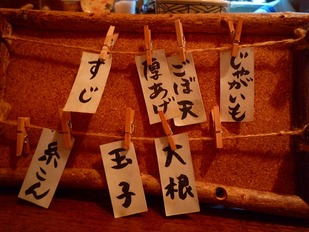 すじ
厚あげ
ごぼ天
じゃがいも
糸こん
玉子
大根